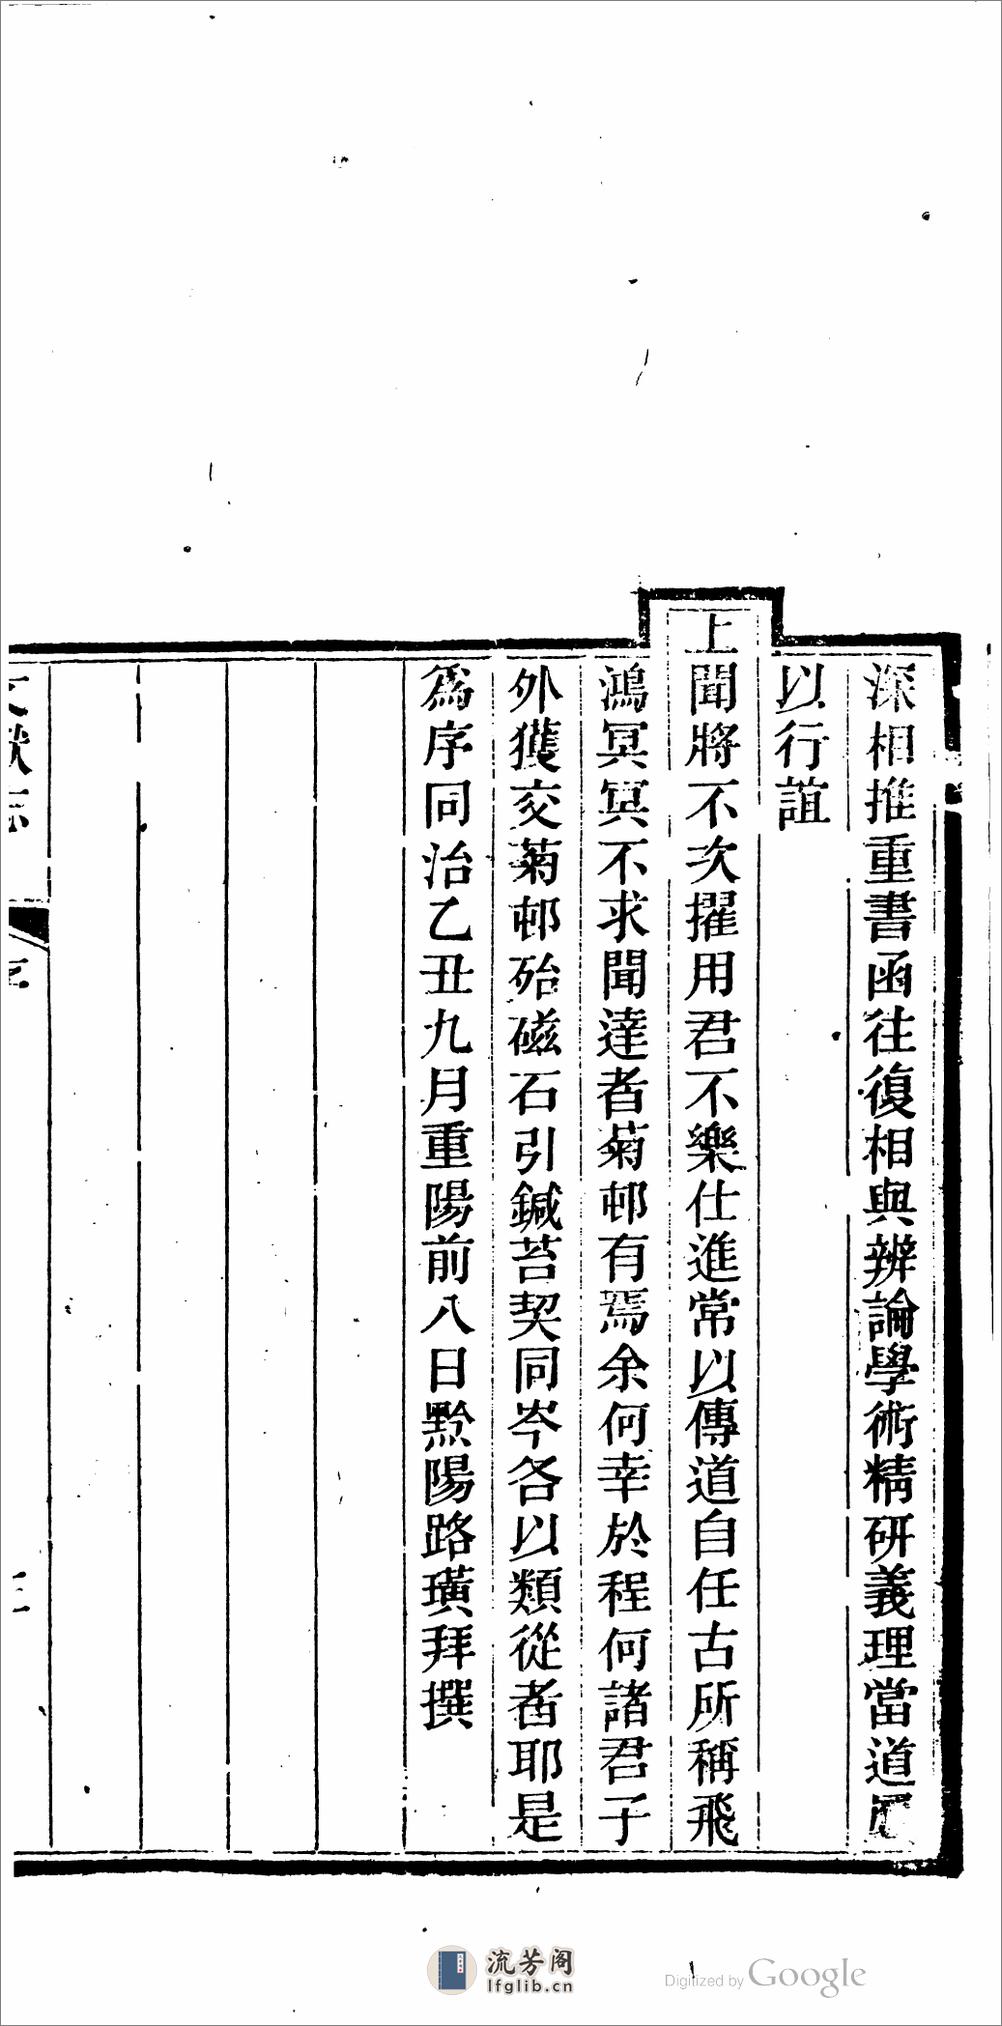 深相推重書函往復相與辨論學術精研義理當道
以行誼
上聞將不次擢用君不樂仕進常以傳道自任古所稱飛
鴻冥冥不求聞達者菊邨有焉余何幸於程何諸君子
外獲交菊邨殆磁石引鍼苔契同岑各以類從者耶是
為序同治乙丑九月重陽前八日黟陽路璜拜撰
流芳阁
lfglib.cn
Digitized by Google